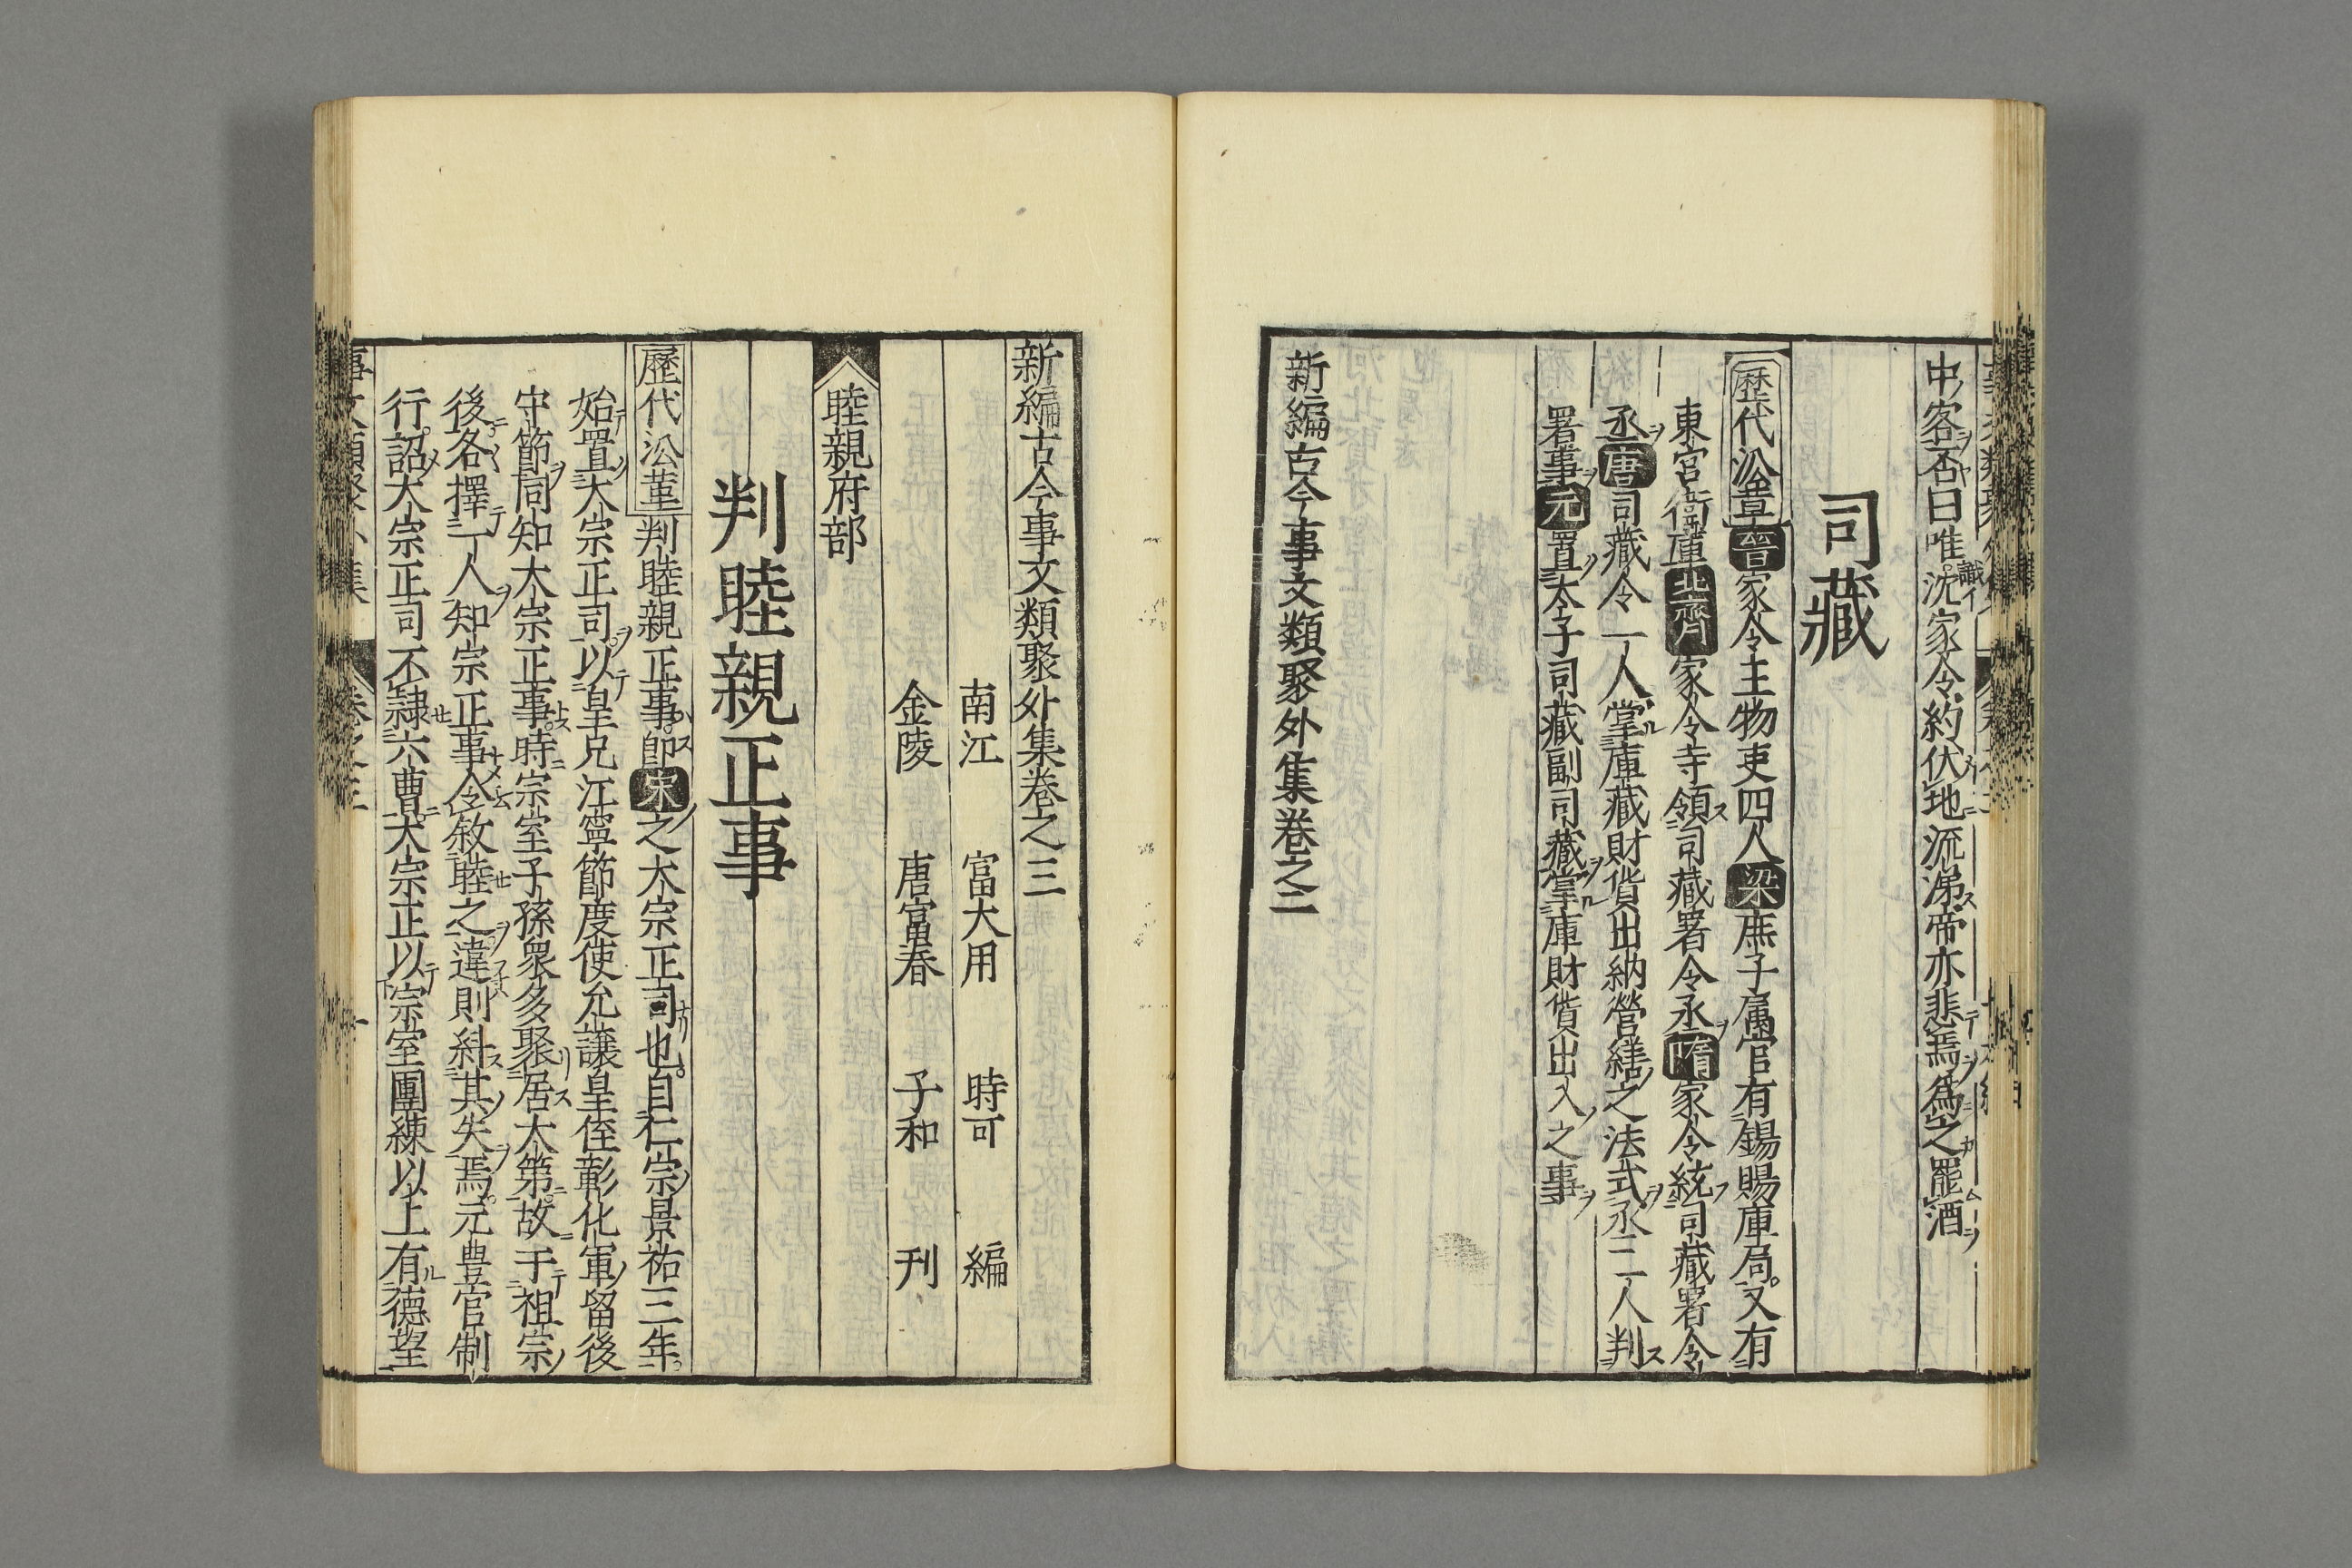 中客否曰唯識沈家令約伏地流涕帝亦悲焉爲之罷酒
司藏
歷代㳂革晉家令主物吏四人梁庶子属官有錫賜庫局又有
東宮衛庫北齊家令寺領司藏署令丞隋家令統司藏署令
丞唐司藏令一人掌庫藏財貨出納營繕之法式丞二人判
署事元置太子司藏副司藏掌庫財貨出入之事
新編古今事文類聚外集卷之二
新編古今事文類聚外集卷之三
南江 富大用 時可 編
金陵 唐富春 子和 刊
睦親府部
判睦親正事
歷代㳂革判睦親正事即宋之大宗正司也自仁宗景祐三年
始置大宗正司以皇兄江寧節度使允讓皇侄彰化軍留後
守節同知大宗正事時宗室子孫衆多聚居大第故于祖宗
後各擇一人知宗正事令敘睦之違則糾其失焉元豊官制
行詔大宗正司不隸六曹大宗正以宗室團練以上有德望